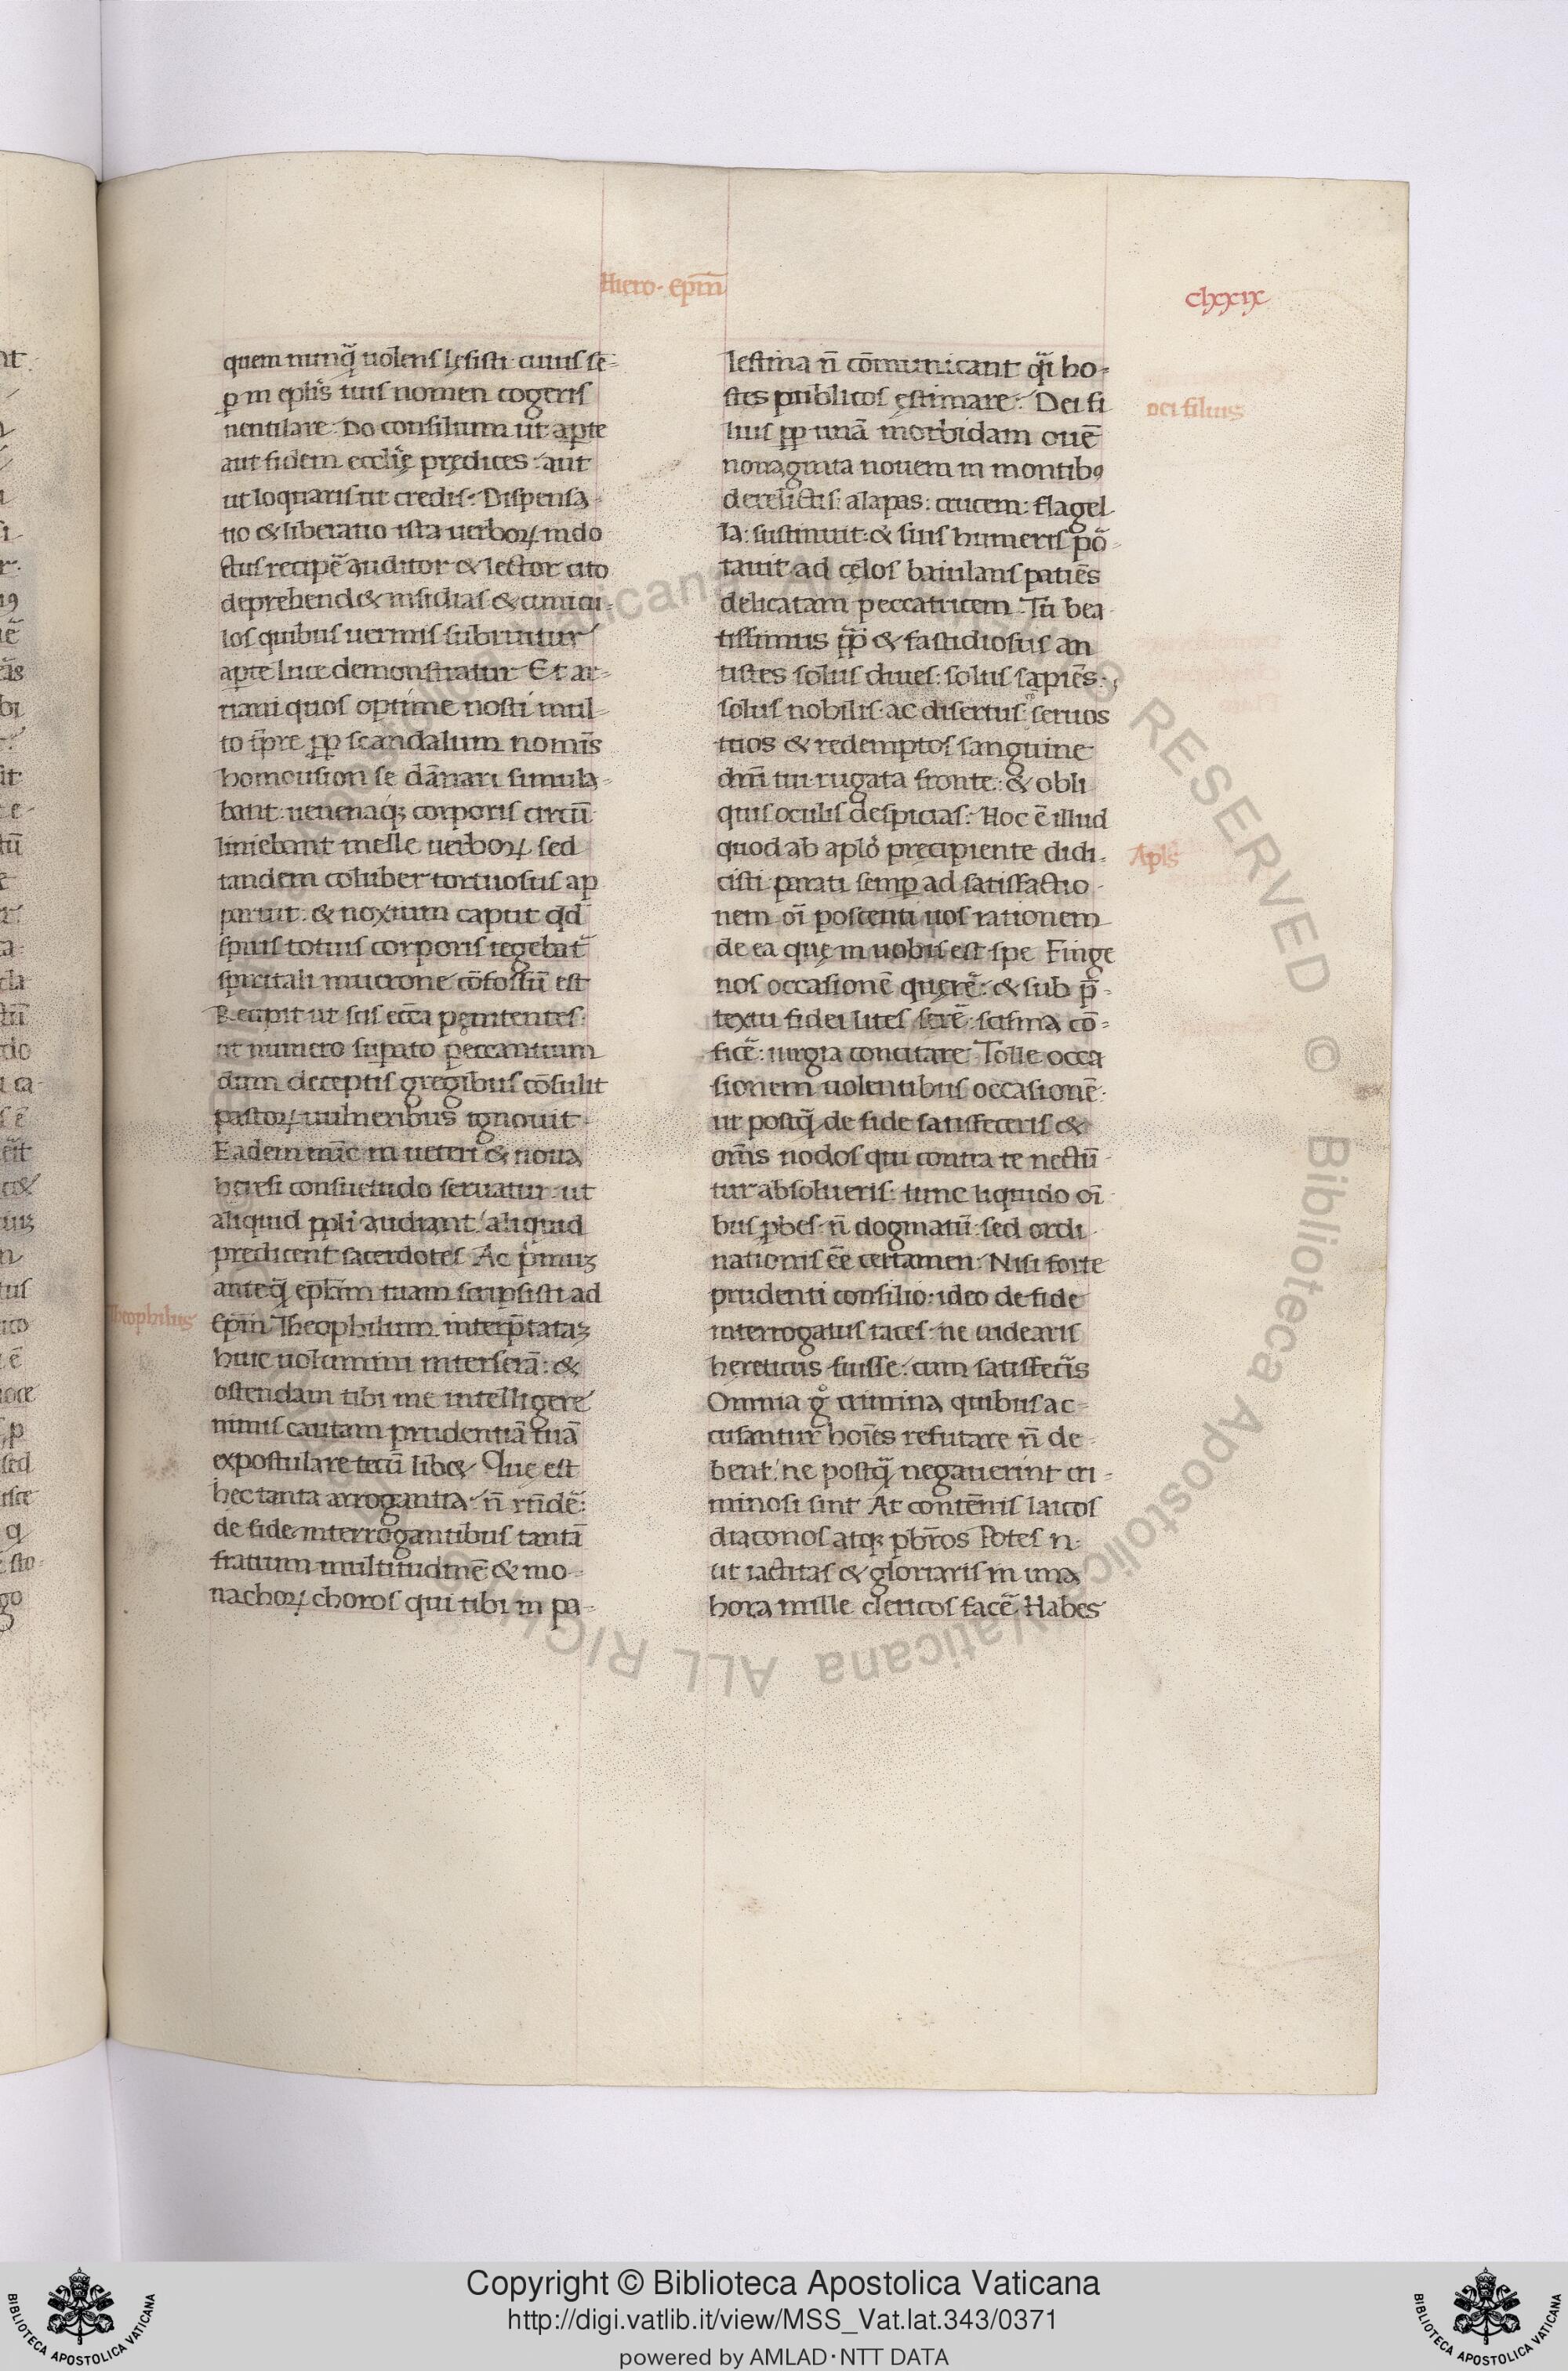 Hiero. epm̄
clxxix
quem nunq̄ uolens lęsisti cuius sę-
p in epl̄is tuis nomen cogeris
uentilare. Do consilium ut apte
aut fidem ecclīę prędices: aut
ut loquaris ut credis. Dispensa
tio & liberatio ista uerboꝝ indo
ctus recipē auditor & lector cito
deprehend& insidias & cunicu-
los quibus uermis subruitur
apte luce demonstratur. Et ar-
riani quos optime nosti mul-
to tp̄re pp scandalum nomīs
homousion se dānari simula-
bant uenenaqꝫ corporis circū
liniebant melle uerboꝝ sed
tandem coluber tortuosus ap
paruit. & noxium caput qd̄
spiris totius corporis tegebat̄
spiritali mucrone cōfossū est
Recipit ut scis ecc̄a pęnitentes
ut numero supato peccantium
dum deceptis gregibus cōsulit
pastoꝝ uulneribus ignouit
Eadem nūc in ueteri & noua
heresi consuetudo seruatur. ut
aliquid ppli audiant aliquid
predicent sacerdotes. Ac pmuꝫ
anteq̄ epl̄am tuam scripsisti ad
Theophilus
Epm̄ Theophilum interp̄tataꝫ
huic uolumini interserā: &
ostendam tibi me intelligere
nimis cautam prudentiā tuā
expostulare tecū lib&. Que est
hec tanta arrogantia: n̄ rn̄dē:
de fide interrogantibus tantā
fratrum multitudinē & mo-
nachoꝝ choros qui tibi in pa-
lestina n̄ cōmunicant q̄i ho-
stes publicos ęstimare. Dei fi
dei filius
lius pp unā morbidam ouē
nonaginta nouem in montibꝰ
derelictis alapas: crucem: flagel
la: sustinuit: & suis humeris pō-
tauit ad cęlos baiulans patiēs
delicatam peccatricem. Tu bea
tissimus pp̄ & fastidiosus an
tistes solus diues: solus sapiēs:
solus nobilis ac disertus seruos
tuos & redemptos sanguine
dn̄i tui rugata fronte: & obli
quis oculis despicias. Hoc ē illud
quod ab aplo precipiente didi-
Apls
cisti parati semp ad satisfactio
nem oī poscenti uos rationem
de ea quę in uobis est spe Finge
nos occasionē quęrē: & sub p̄-
textu fidei lites serē: scisma cō-
ficē: iurgia concitare. Tolle occa
sionem uolentibus occasionē:
ut postq̄ de fide satisfeceris &
om̄s nodos qui contra te nectū-
tur absolueris. tunc liquido oī
bus pbes n̄ dogmatū sed ordi
nationis eē certamen. Nisi forte
prudenti consilio: ideo de fide
interrogatus taces: ne uidearis
hereticus fuisse: cum satisfecīs
Omnia gͦ crimina quibus ac-
cusantur hoīes refutare n̄ de-
bent. ne postq̄ negauerint cri-
minosi sint At contēnis laicos
diaconos atqꝫ pbr̄os Potes n.
ut iactitas & gloriaris in una
hora mille clericos facē. Habes
Copyright © Biblioteca Apostolica Vaticana
http://digi.vatlib.it/view/MSS_Vat.lat.343/0371
powered by AMLAD·NTT DATA